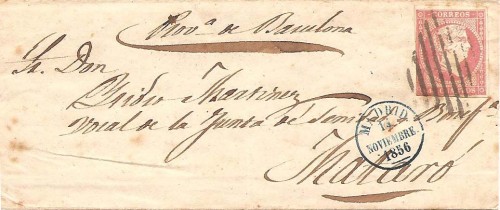 Provª de Barcelona
CORREOS
Sr. Don
Isidro Martinez
Vocal de la Junta de
Mataró
MADRID
14
NOVIEMBRE
1856